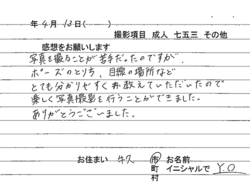 年 4月 13日(……)
撮影項目 成人 七五三 その他
感想をお願いします
写真を撮ることが苦手だったのですが、
ポーズのとり方、目線の場所など
とても分かりやすくお教えていただいたので
楽しく写真撮影を行うことができました。
ありがとうございました。
お住まい 牛久 市 お名前
町 イニシャルで Y.O
村